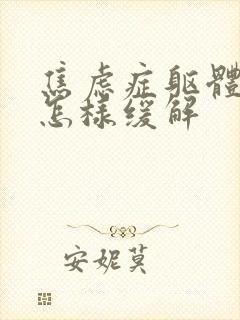 焦虑症躯體
怎樣缓解
安妮莫